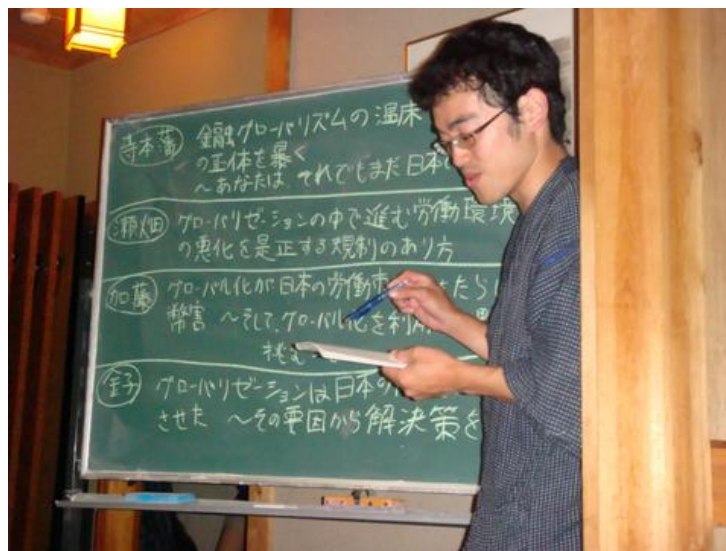 寺本藩 金融グローバリズムの温床
の正体を暴く
～あなたは、それでもまだ日本
瀬畑 グローバリゼーションの中で進む労働環境
の悪化を是正する規制のあり方
加藤 グローバル化が日本の労働市 たらし
弊害 ～そして、グローバル化を利用
挑む
金子 グローバリゼーションは日本の
させた ～その要因から解決策を